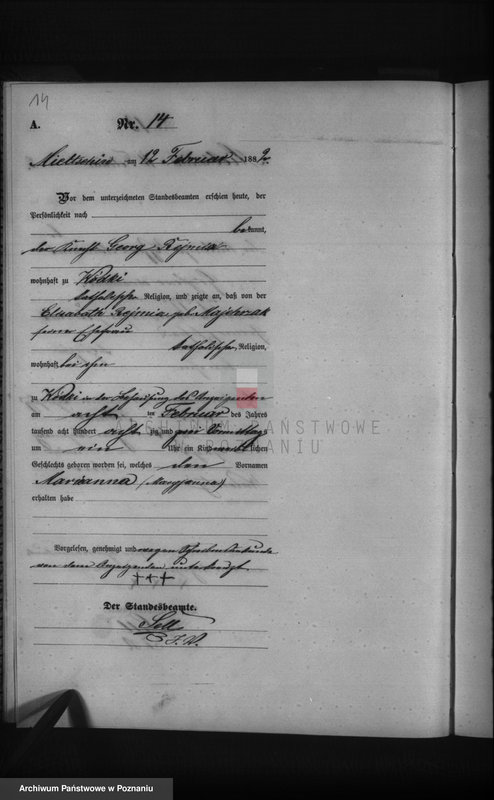 14
A.
Nr. 14
Mieltschin am 12 Februar 1882.
Vor dem unterzeichneten Standesbeamten erschien heute, der
Persönlichkeit nach
bekannt,
der Knecht Georg
wohnhaft zu
katholischer Religion, und zeigte an, daß von der
Elisabeth geb.
seiner Ehefrau
katholischer Religion,
wohnhaft bei ihm
zu in der Behausung des Anzeigenden
am achten ten Februar des Jahres
tausend acht hundert achtzig und zwei Vormittags
um ein Uhr ein Kind weiblichen
Geschlechts geboren worden sei, welches den Vornamen
Marianna (Maryjanna)
erhalten habe
Vorgelesen, genehmigt und wegen Schreibensunkunde
von dem Anzeigenden unterkreuzt.
+++
Der Standesbeamte.
Sell
ARCHIWUM PAŃSTWOWE
W POZNANIU
Archiwum Państwowe w Poznaniu